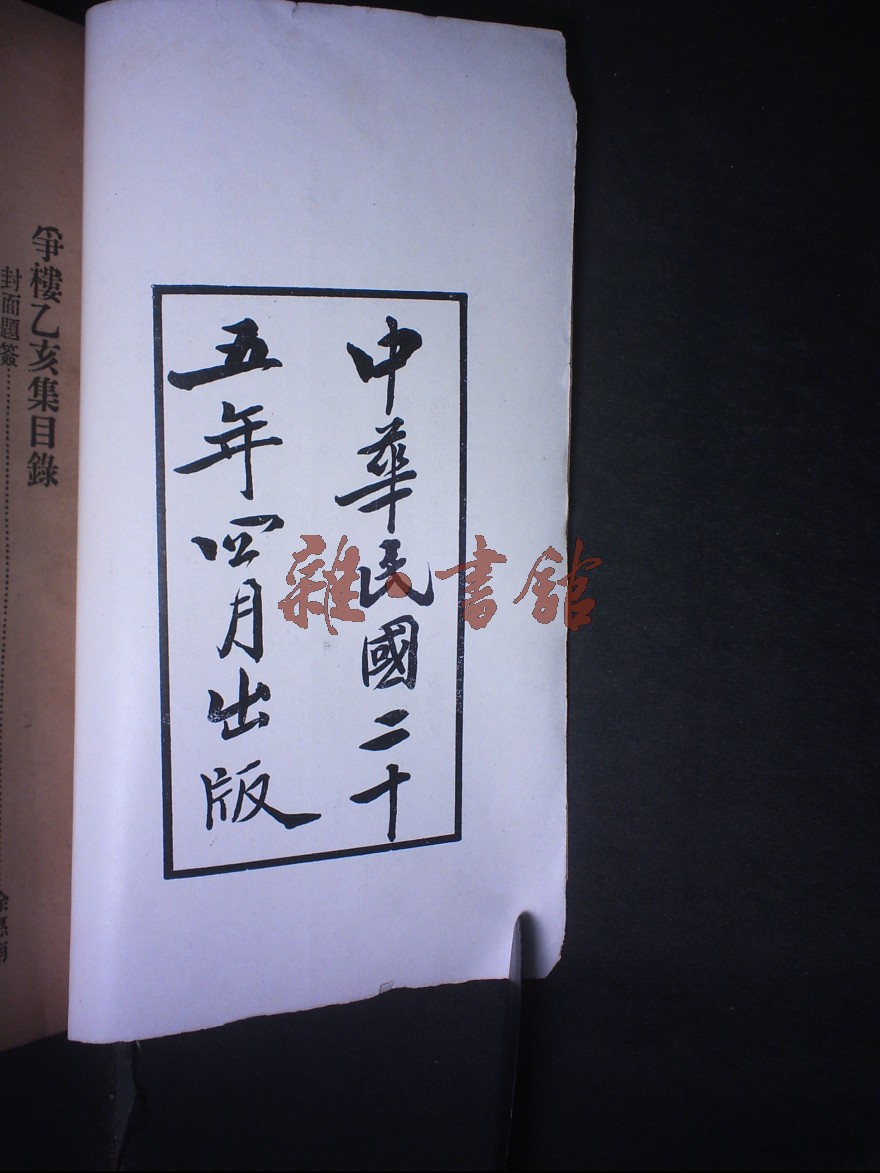 中華民國二十
五年四月出版
爭樓乙亥集目錄
封面題簽
雜·書館